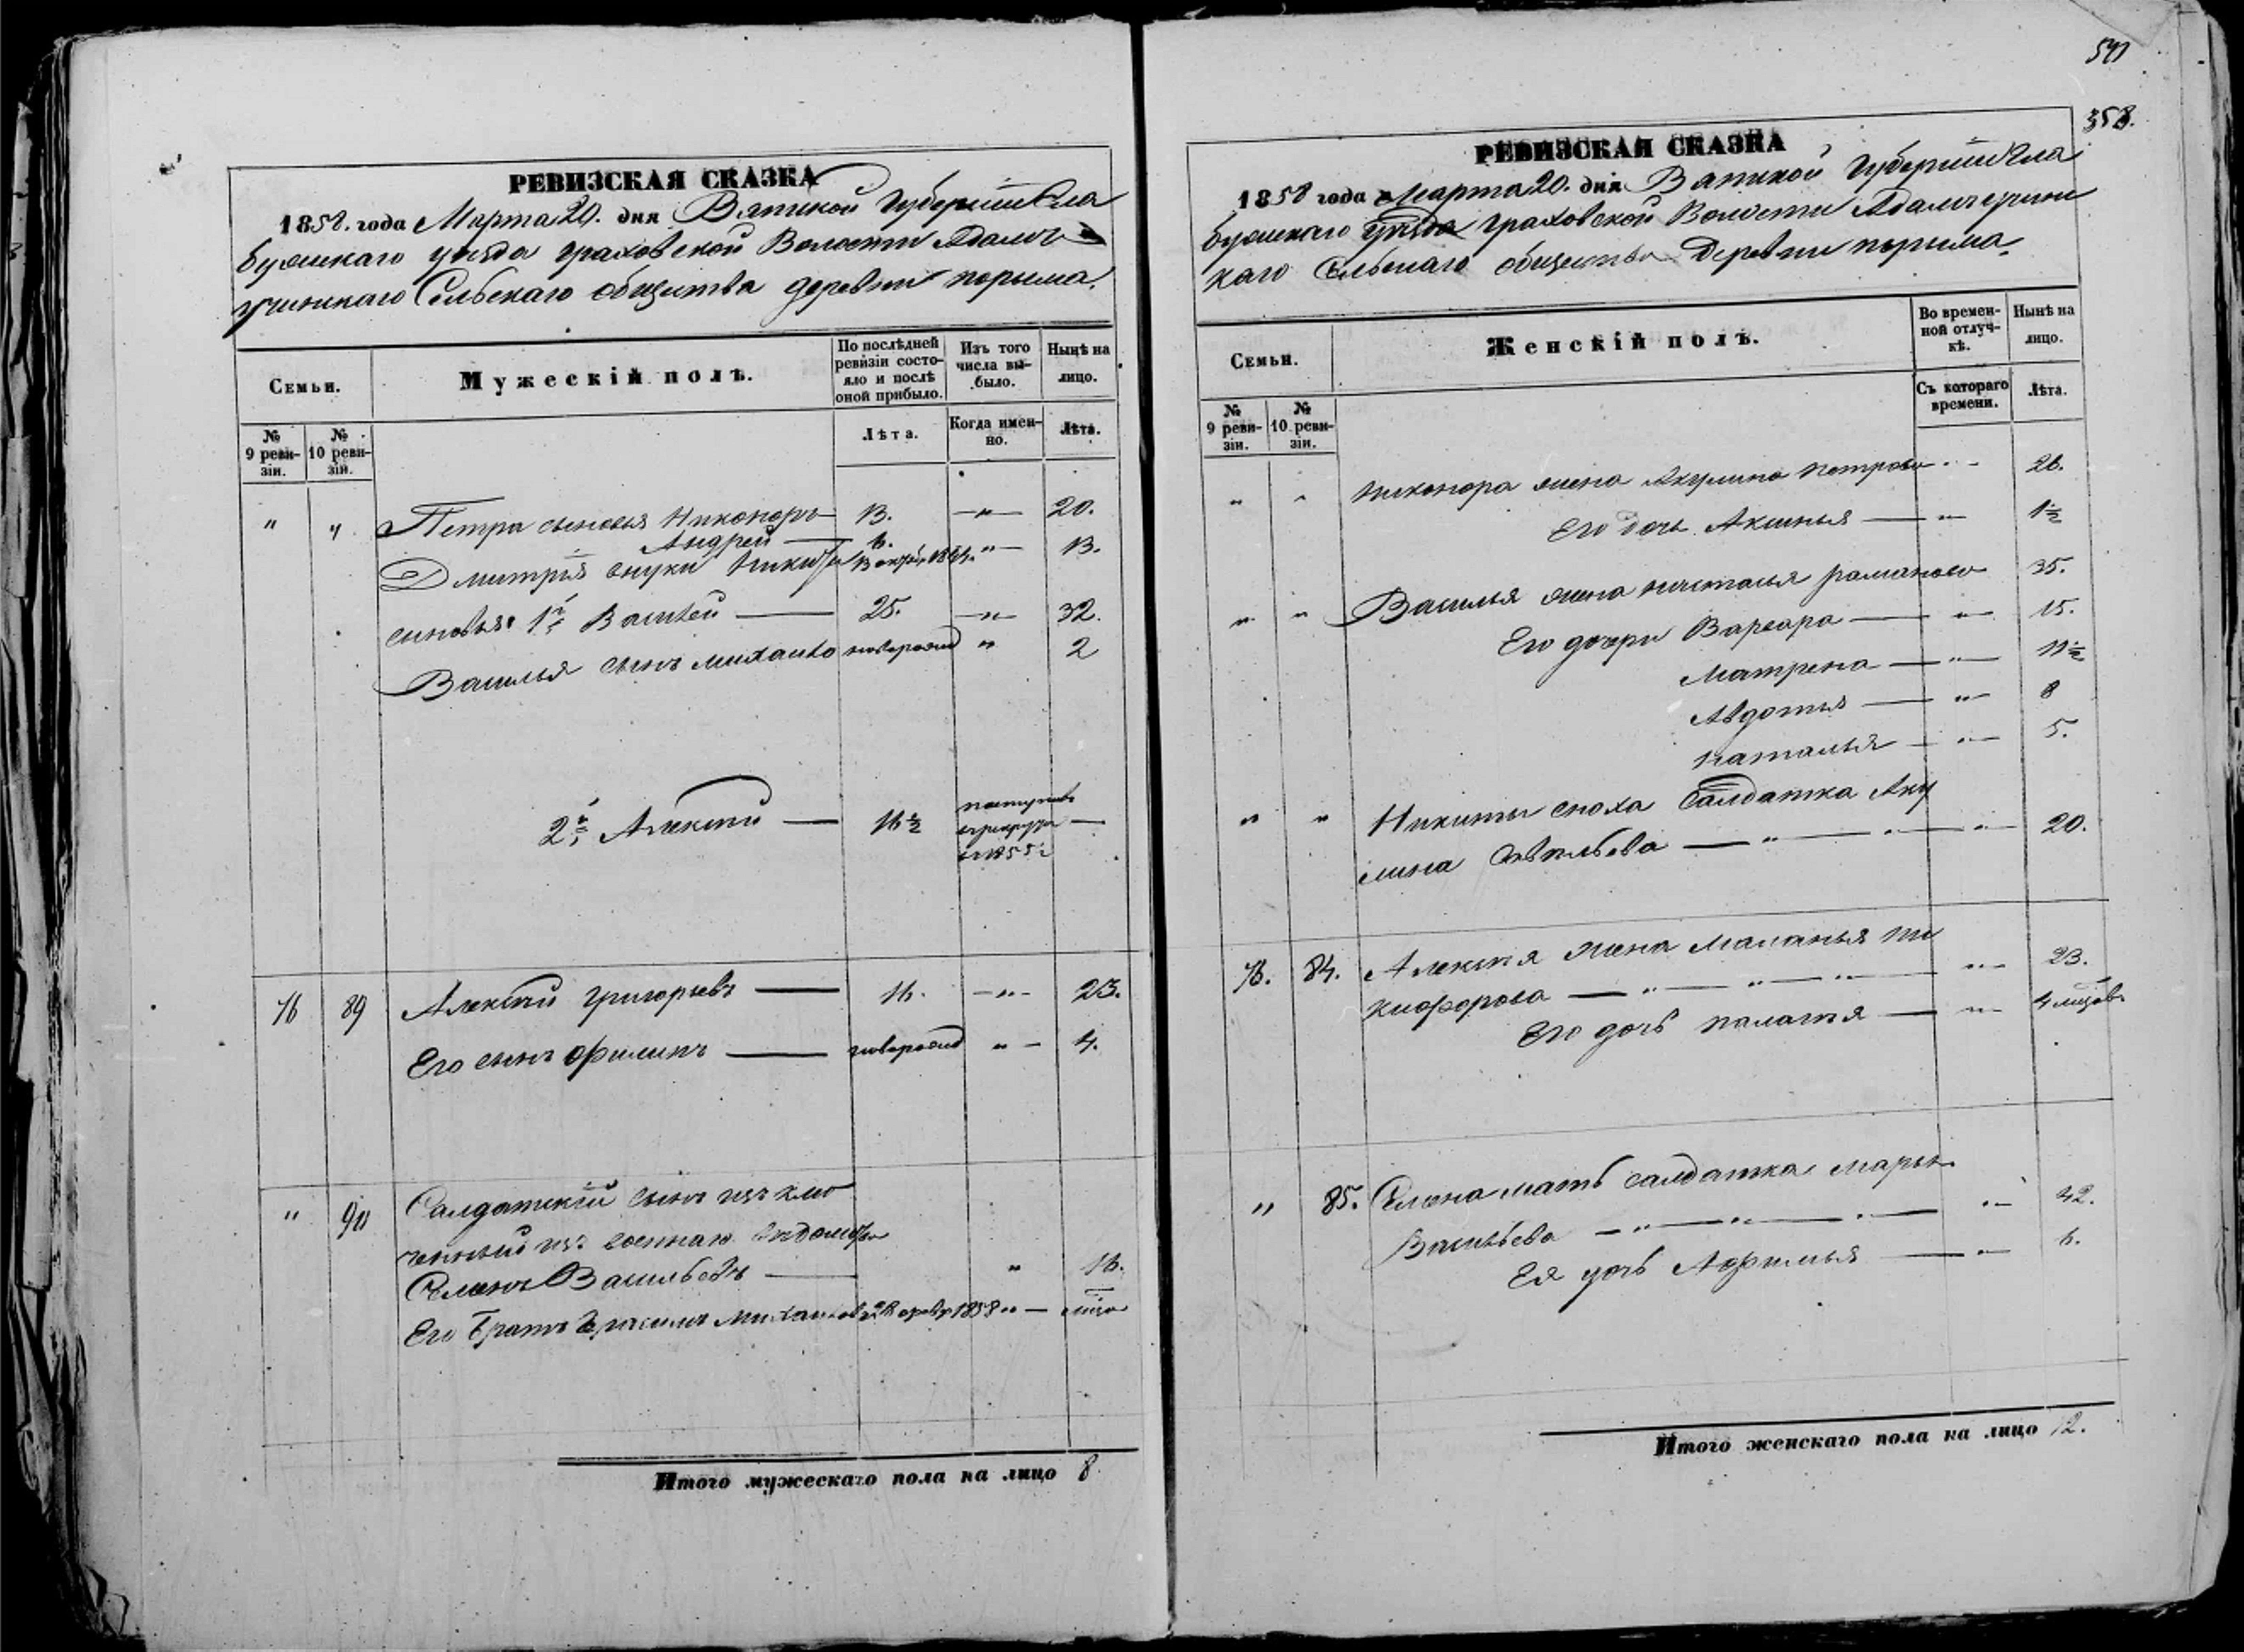 РЕВИЗСКАЯ СКАЗКА
1858. года Марта 20. дня Вятской Губернии Ела
бужскаго уѣзда Граховской Волости Адамъ
учинскаго Сельскаго общества деревни Порыма.
Семьи.
Мужескій полъ.
По послѣдней ревизіи состояло и послѣ оной прибыло.
Изъ того числа выбыло.
Нынѣ на лицо.
№ 9 ревизіи.
№ 10 ревизіи.
Лѣта.
Когда именно.
Лѣта.
" " Петра сыновья Никоноръ — 13. —"— 20.
Андрей — 6. " — 13.
Дмитрія внуки Никиты
сыновья 1й Василей — 25. —"— 32.
Василья сынъ Михаило новорожд " 2
2й Алексѣй — 16½ поступилъ
в рекруты —
в 1855 г.
76 89 Алексѣй Григорьевъ — 16. —"— 23.
Его сынъ Филипъ — новорожд " — 4.
" 90 Салдатскій сынъ изъ клю
ченный изъ военнаго вѣдомства
Семенъ Васильевъ — " 16.
Его братъ Михаиловъ 28 февр 1858 " —
Итого мужескаго пола на лицо 8.
358.
РЕВИЗСКАЯ СКАЗКА
1858 года Марта 20. дня Вятской Губерніи Ела
бужскаго уѣзда Граховской Волости Адамъучинс
каго Сельскаго общества Деревни Порыма.
Семьи.
Женскій полъ.
Во временной отлучкѣ.
Нынѣ на лицо.
№ 9 ревизіи.
№ 10 ревизіи.
Съ котораго времени.
Лѣта.
" " Никонора жена Акулина Петрова - - 26.
Его дочь Аксинья — " 1½
" " Василья жена Настасья Романова 35.
Его дочери Варвара — " — 15.
Матрена — " — 11½
Авдотья — " — 8
Наталья — " — 5.
" " Никиты сноха Салдатка Аку
лина Савельева — " — " — " — 20.
76. 84. Алексѣя жена Маланья Ни
кифорова — " — " — " — " — 23.
Его дочь Палагѣя — " — 4 мѣсяцовъ
" 85. Семена мать салдатка Марья
Васильева — " — " — " — " — 42.
Ея дочь Афимья — " — 6.
Итого женскаго пола на лицо 12.